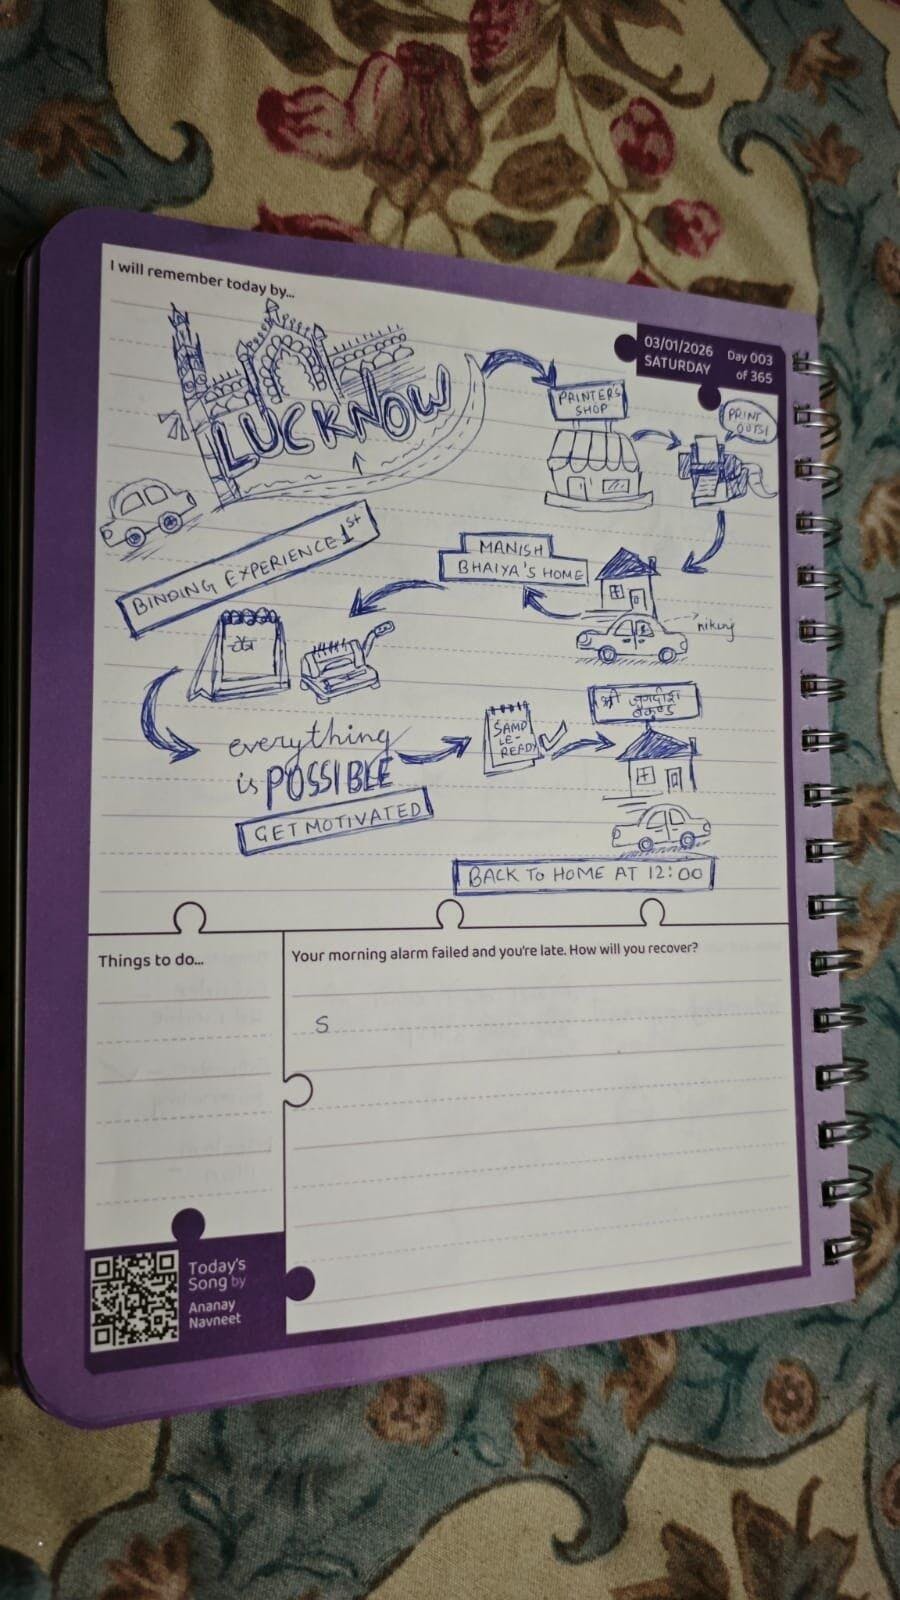 I will remember today by...
03/01/2026
SATURDAY
Day 003
of 365
LUCKNOW
PRINTER'S
SHOP
PRINT
OUTS!
BINDING EXPERIENCE 1st
MANISH
BHAIYA'S HOME
everything
is POSSIBLE
GET MOTIVATED
SAMP
LE-
READY
श्री जगदीश
BACK TO HOME AT 12:00
Things to do...
Your morning alarm failed and you're late. How will you recover?
S
Today's
Song by
Ananay
Navneet